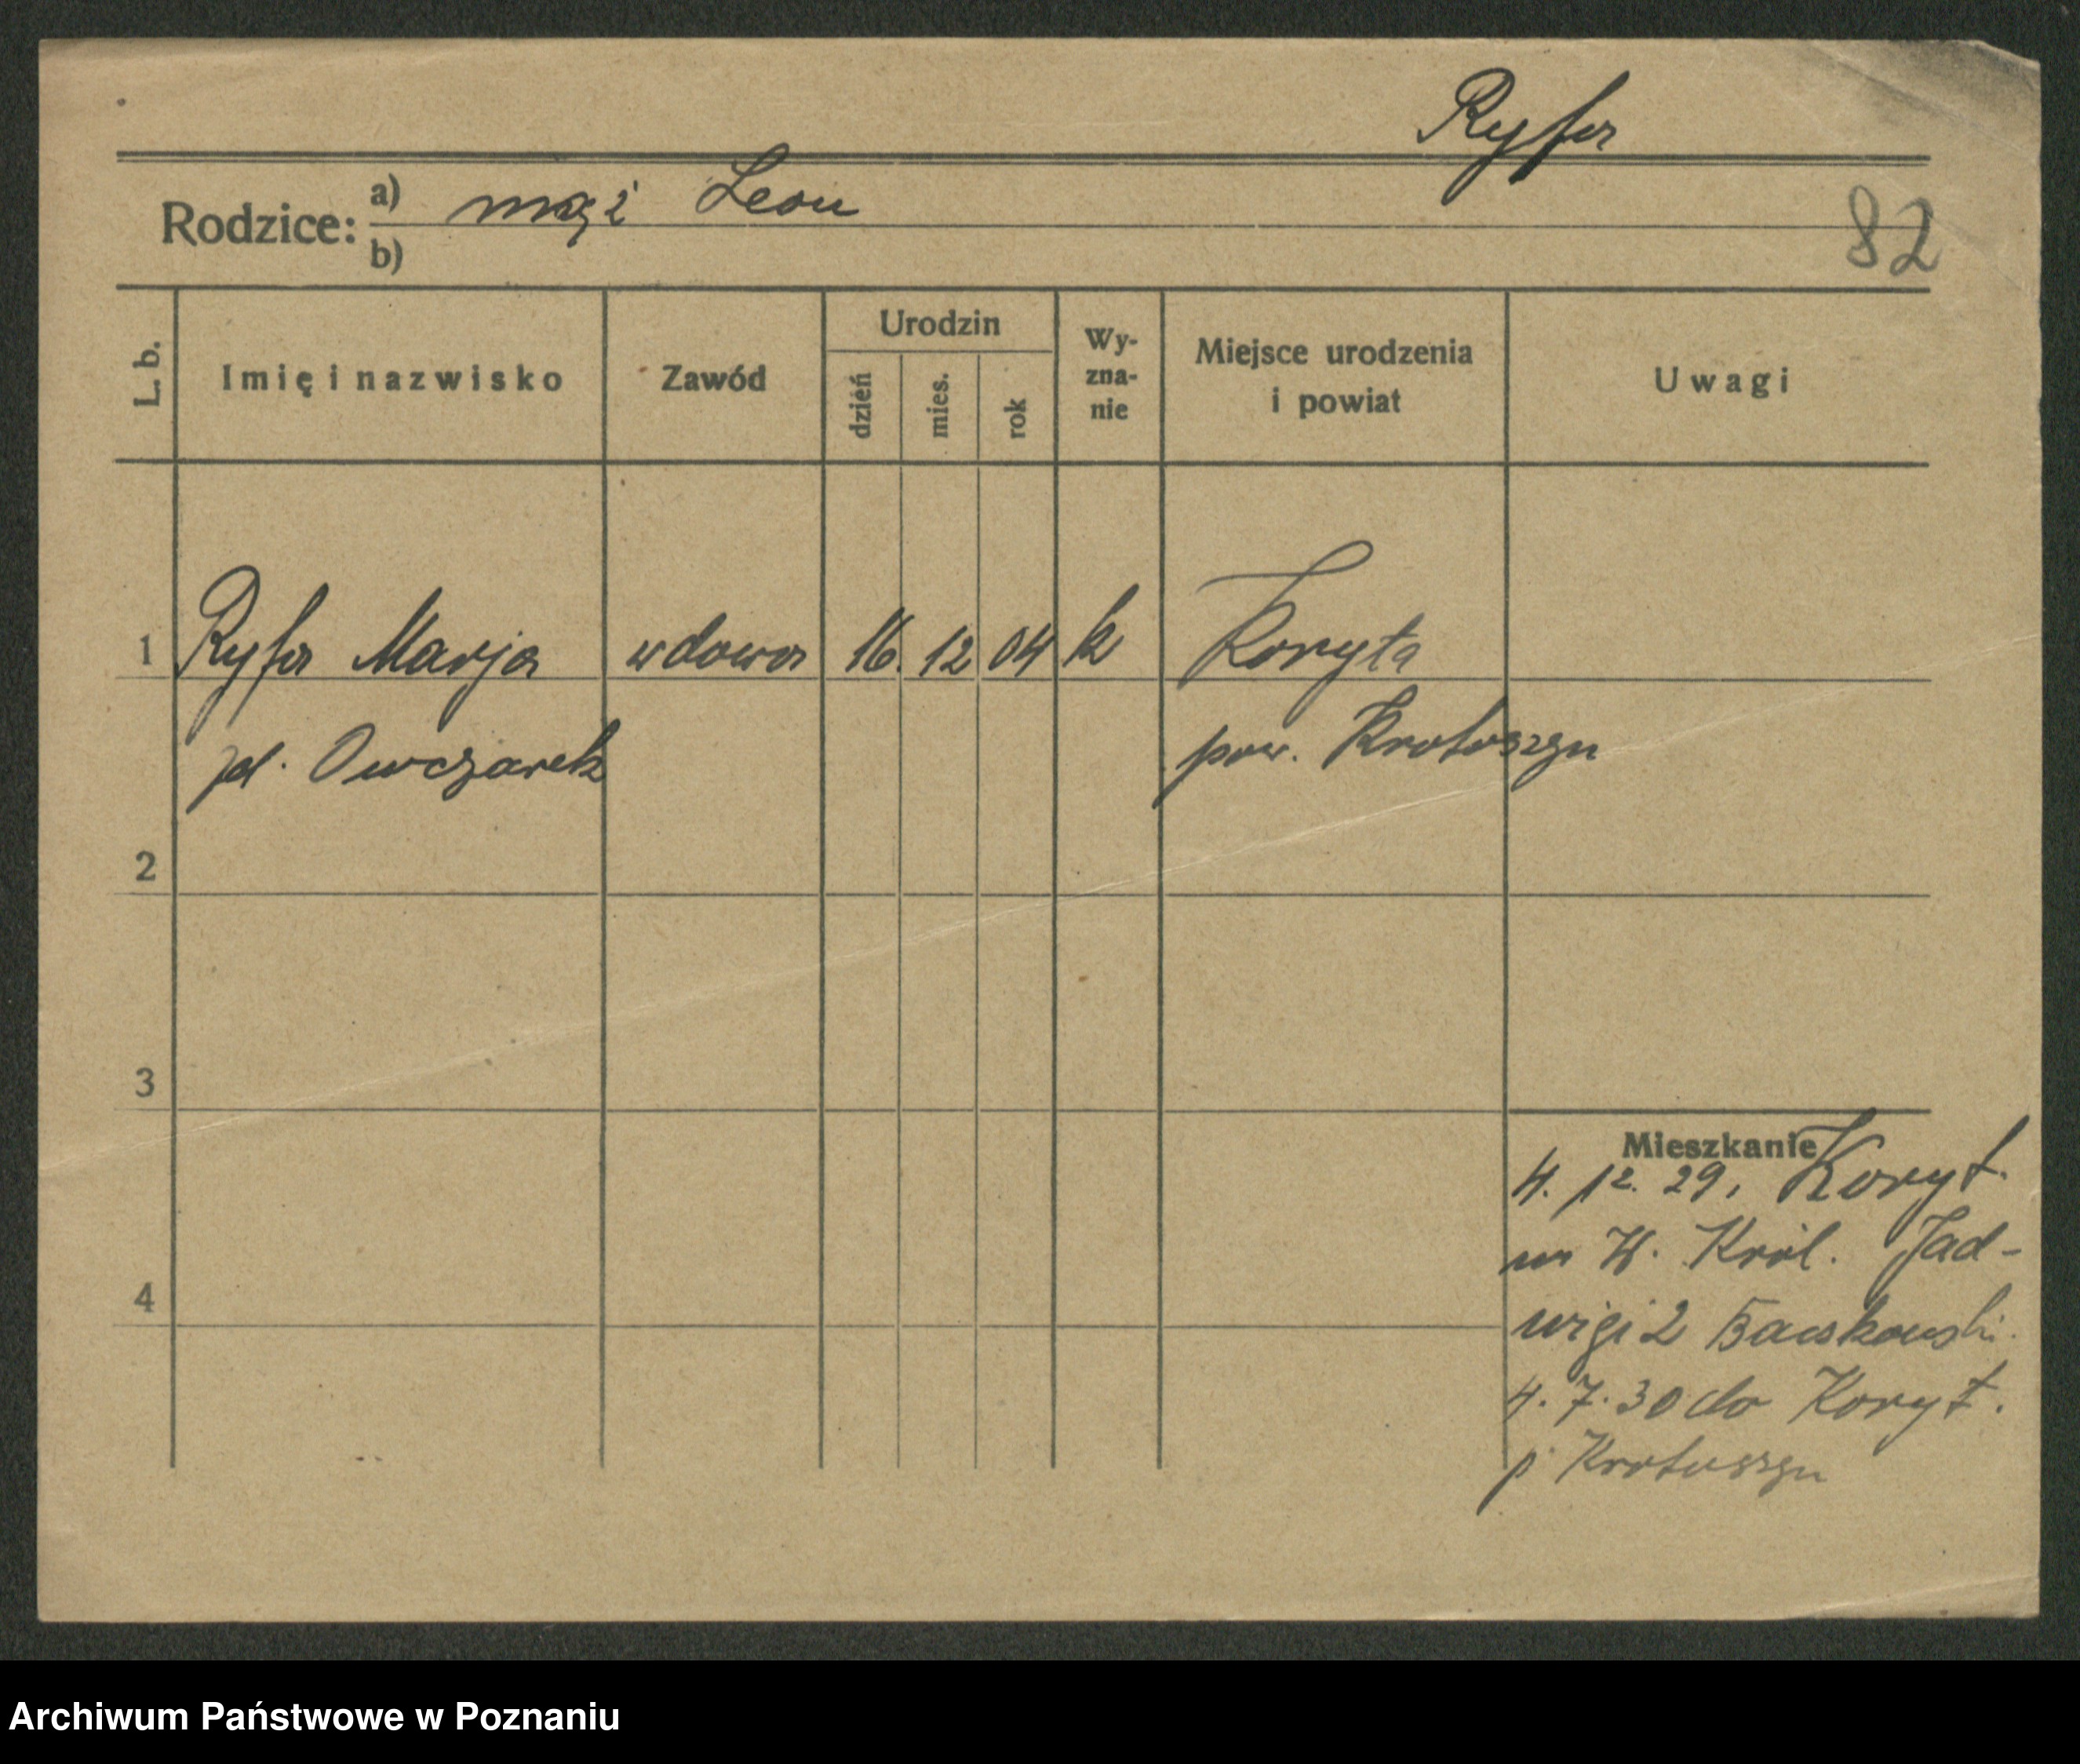 Ryfa
Rodzice: a) mąż Leon
b)
82
L. b.
Imię i nazwisko
Zawód
Urodzin
dzień
mies.
rok
Wy-
zna-
nie
Miejsce urodzenia
i powiat
Uwagi
1 Ryfa Marja wdowa 16. 12 04 k Koryta
Owczarek pow. Krotoszyn
2
3
4
Mieszkanie
4. 12. 29, Koryt.
Król. Jad-
wigi 2
4. 7. 30 do Koryt.
p Krotoszyn
Archiwum Państwowe w Poznaniu